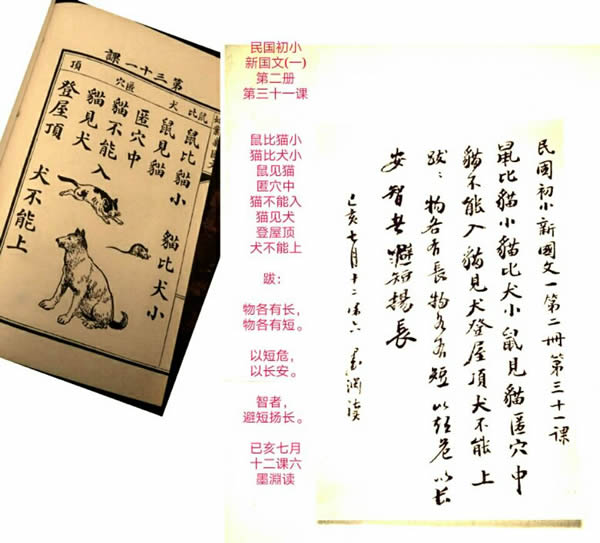 第三十一課
鼠比
犬
匿穴
頂
鼠比貓小 貓比犬小
鼠見貓
匿穴中
貓不能入
貓見犬
登屋頂
犬不能上
民国初小
新国文(一)
第二册
第三十一课
鼠比猫小
猫比犬小
鼠见猫
匿穴中
猫不能入
猫见犬
登屋顶
犬不能上
跋:
物各有长，
物各有短。
以短危，
以长安。
智者，
避短扬长。
已亥七月
十二课六
墨淵读
民國初小新國文一第二冊第三十一课
鼠比貓小貓比犬小鼠見貓匿穴中
貓不能入貓見犬登屋頂犬不能上
跋：物各有長物各有短以短危以长
安智者避短揚長
已亥七月十二课六 墨渊读